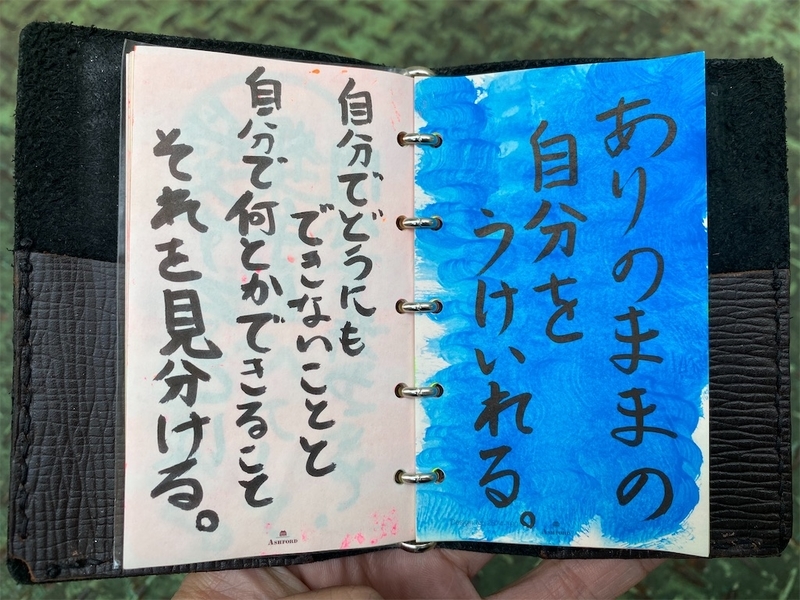 ありのままの
自分を
うけいれる。
自分でどうにも
できないことと
自分で何とかできること
それを見分ける。
ASHFORD
ASHFORD